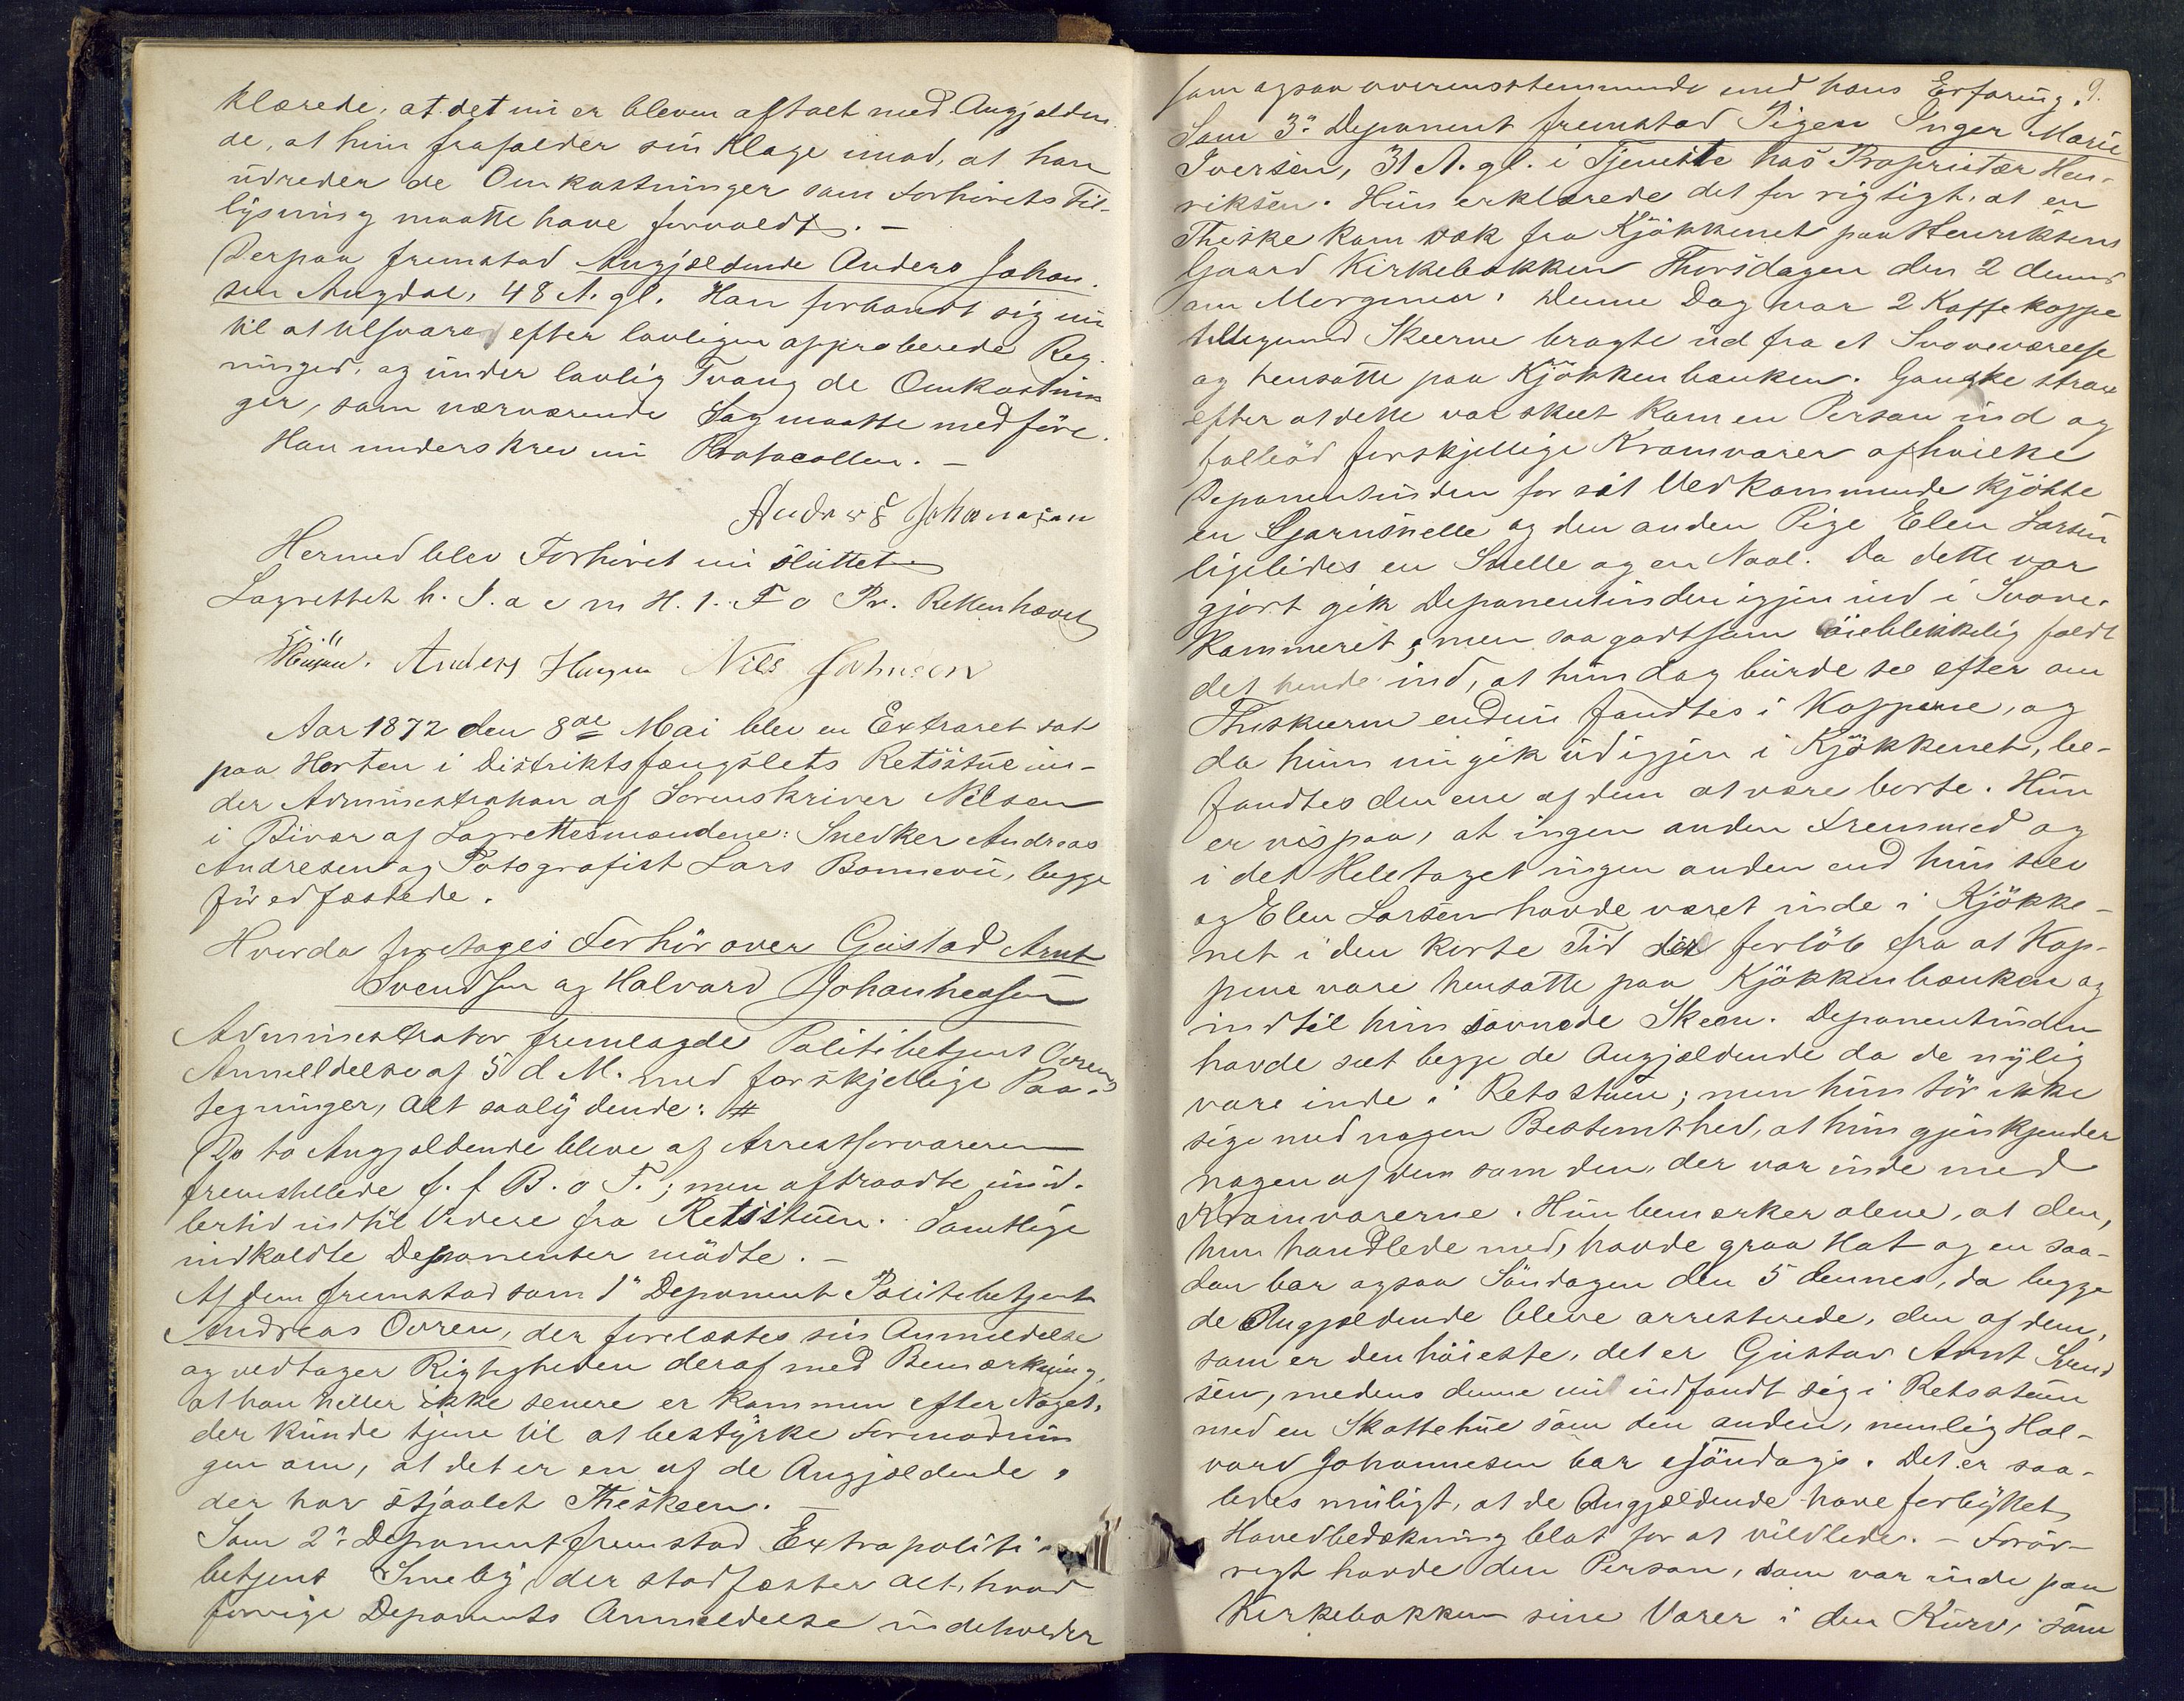 klærede, at det nu er bleven aftalt med Angjælden
de, at hun frafalder sin Klage imod, at han
udreder de Omkostninger som Forhörets Til-
lysning maatte have forvoldt. -
Derpaa fremstod Angjældende Anders Johan-
sen Augdal, 48 A. gl. Han forbandt sig nu
til at tilsvare efter lovligen approberede Reg
ninger, og under lovlig Tvang de Omkostnin
ger, som nærværende Sag maatte medföre.
Han underskrev nu Protocollen. -
Andres Johanesen
Hermed blev Forhöret nu sluttet
Lagrettet h. I. a e m H. 1. F o Pr. Retten hævet
Anders Haugen Nils Johnsen
Aar 1872 den 8de Mai blev en Extraret sat
paa Horten i Distriktsfængslets Retsstue un-
der Administration af Sorenskriver Nilsen
i Bivær af Lagrettesmændene: Snedker Andreas
Andresen og Fotografist Lars Bonnevie, begge
för edfæstede.
Hvorda foretoges Forhör over Gustad Arnt
Svendsen og Halvard Johannessen
Administrator fremlagde Politibetjent Ovrens
Anmelldelse af 5 d M. med forskjellige Paa-
tegninger, alt saalydende: #
De to Angjældende bleve af Arrestforvareren
fremstillede f. f B. o T.; men aftraadte imid-
lertid indtil Videre fra Retsstuen. Samtlige
indkaldte Deponenter mödte. -
Af dem fremstod som 1ste Deponent Politibetjent
Andreas Ovren, der forelæstes sin Anmeldelse
og vedtager Rigtigheden deraf med Bemærkning,
at han heller ikke senere er kommen efter Noget,
der kunde tjene til at bestyrke Formodnin
gen om, at det er en af de Angjældende,
der har stjaalet Theskeen. -
Som 2. Deponent fremstod Extrapoliti-
betjent Smeby der stadfæster alt, hvad
forrige Deponents Anmeldelse indeholder
som ogsaa overensstemmende med hans Erfaring. 9.
Som 3. Deponent fremstod Pigen Inger Marie
Iversen, 31 A. gl. i Tjeneste hos Proprietær Hen-
riksen. Hun erklærede det for rigtigt, at en
Theske kom væk fra Kjökkenet paa Henriksens
Gaard Kirkebakken Thorsdagen den 2 dennes
om Morgenen. Denne Dag var 2 Kaffekoppe
tilligemed Skeerne bragte ud fra et Soveværelse
og hensatte paa Kjökkenbænken. Ganske strax
efter at dette var skeet kom en Person ind og
falböd forskjellige Kramvarer af hvilke
Deponentinden for sit Vedkommende kjöbte
en Garnsnelle og den anden Pige Elen Larsen
ligeledes en Snelle og en Naal. Da dette var
gjort gik Deponentinden igjen ind i Sove-
kammeret; men saa godtsom öieblikkelig faldt
det hende ind, at hun dog burde see efter om
Theskeerne endnu fandtes i Kopperne, og
da hun nu gik ud igjen i Kjökkenet, be-
fandtes den ene af dem at være borte. Hun
er vis paa, at ingen anden Fremmed og
i det Heletaget ingen anden end hun selv
og Elen Larsen havde været inde i Kjökke-
net i den korte Tid der forlöb fra at Kop-
pene vare hensatte paa Kjökkenbænken og
indtil hun savnede Skeen. Deponentinden
havde seet begge de Angjældende da de nylig
vare inde i Retsstuen; men hun tör ikke
sige med nogen Bestemthed, at hun gjenkjender
nogen af dem som den, der var inde med
Kramvarerne. Hun bemærker alene, at den,
hun handlede med, havde graa Hat og en saa-
dan bar ogsaa Söndagen den 5 dennes, da begge
de Angjældende bleve arresterede, den af dem,
som er den höieste, det er Gustav Arnt Svend
sen, medens denne nu indfandt sig i Retsstuen
med en Skottehue som den anden, nemlig Hal-
vard Johannesen bar i Söndags. Det er saa-
ledes muligt, at de Angjældende have forbyttet
Hovedbedækning blot for at vildlede. - Foröv-
rigt havde den Person, som var inde paa
Kirkebakken sine Varer i den Kurv, som